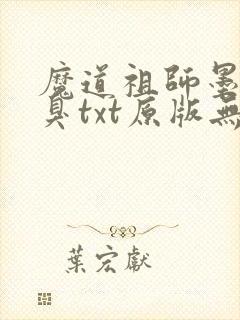 魔道祖師墨
臭txt原版無
葉宏獻